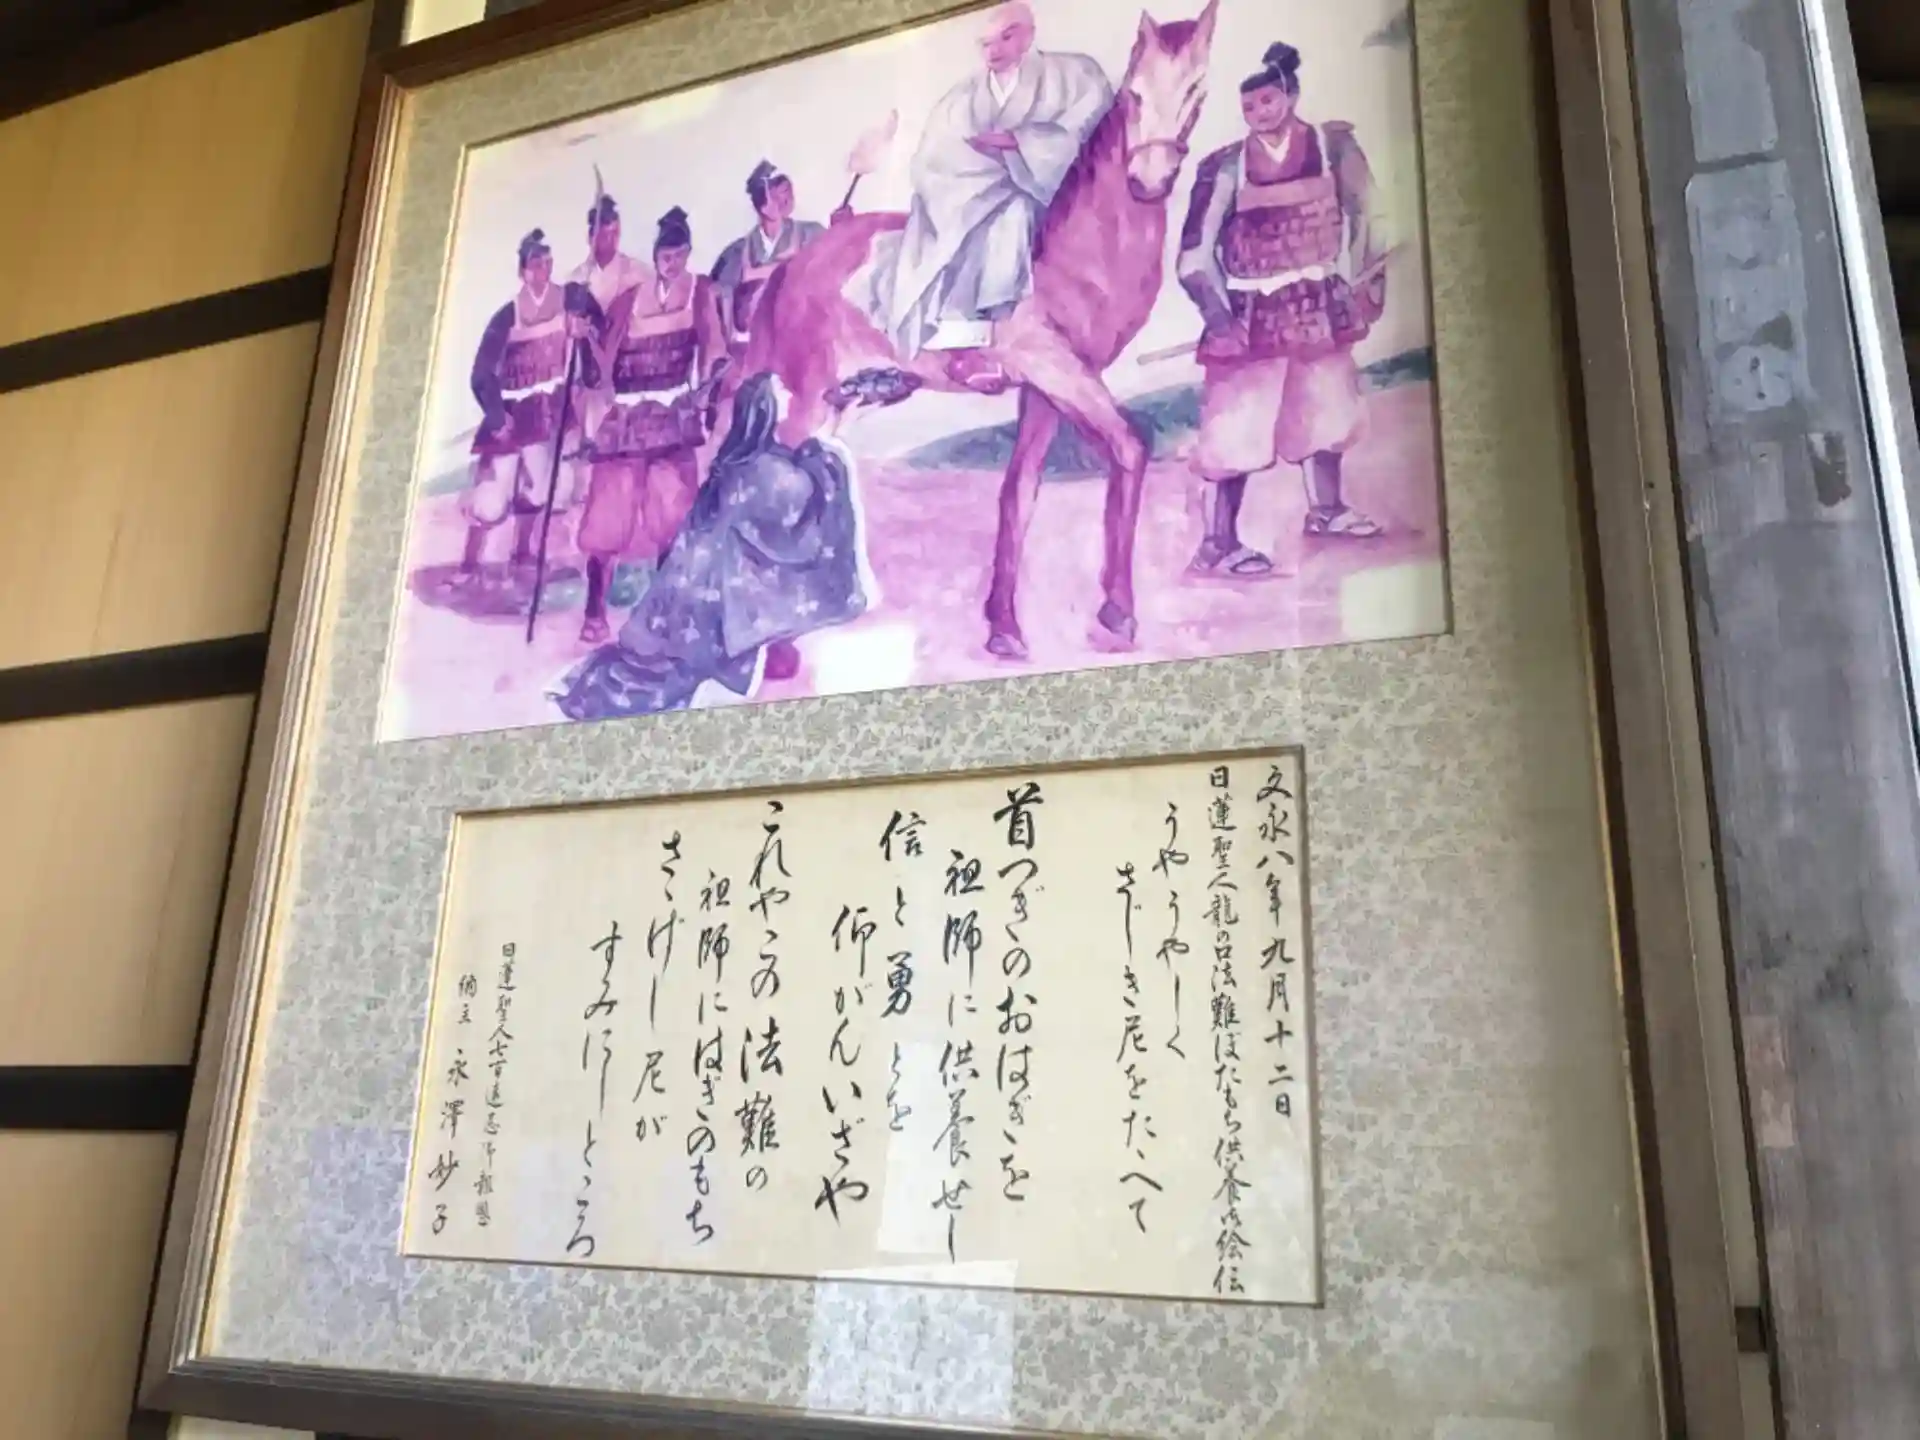 文永八年九月十二日
日蓮聖人龍の口法難ぼたもち供養御絵伝
うやうやしく
さじき尼をたゝへて
首つぎのおはぎを
祖師に供養せし
信と勇とを
仰がんいざや
これやこの法難の
祖師にはぎのもち
さゝげし尼が
すみにしところ
日蓮聖人七百遠忌御報恩
納主 永澤妙子